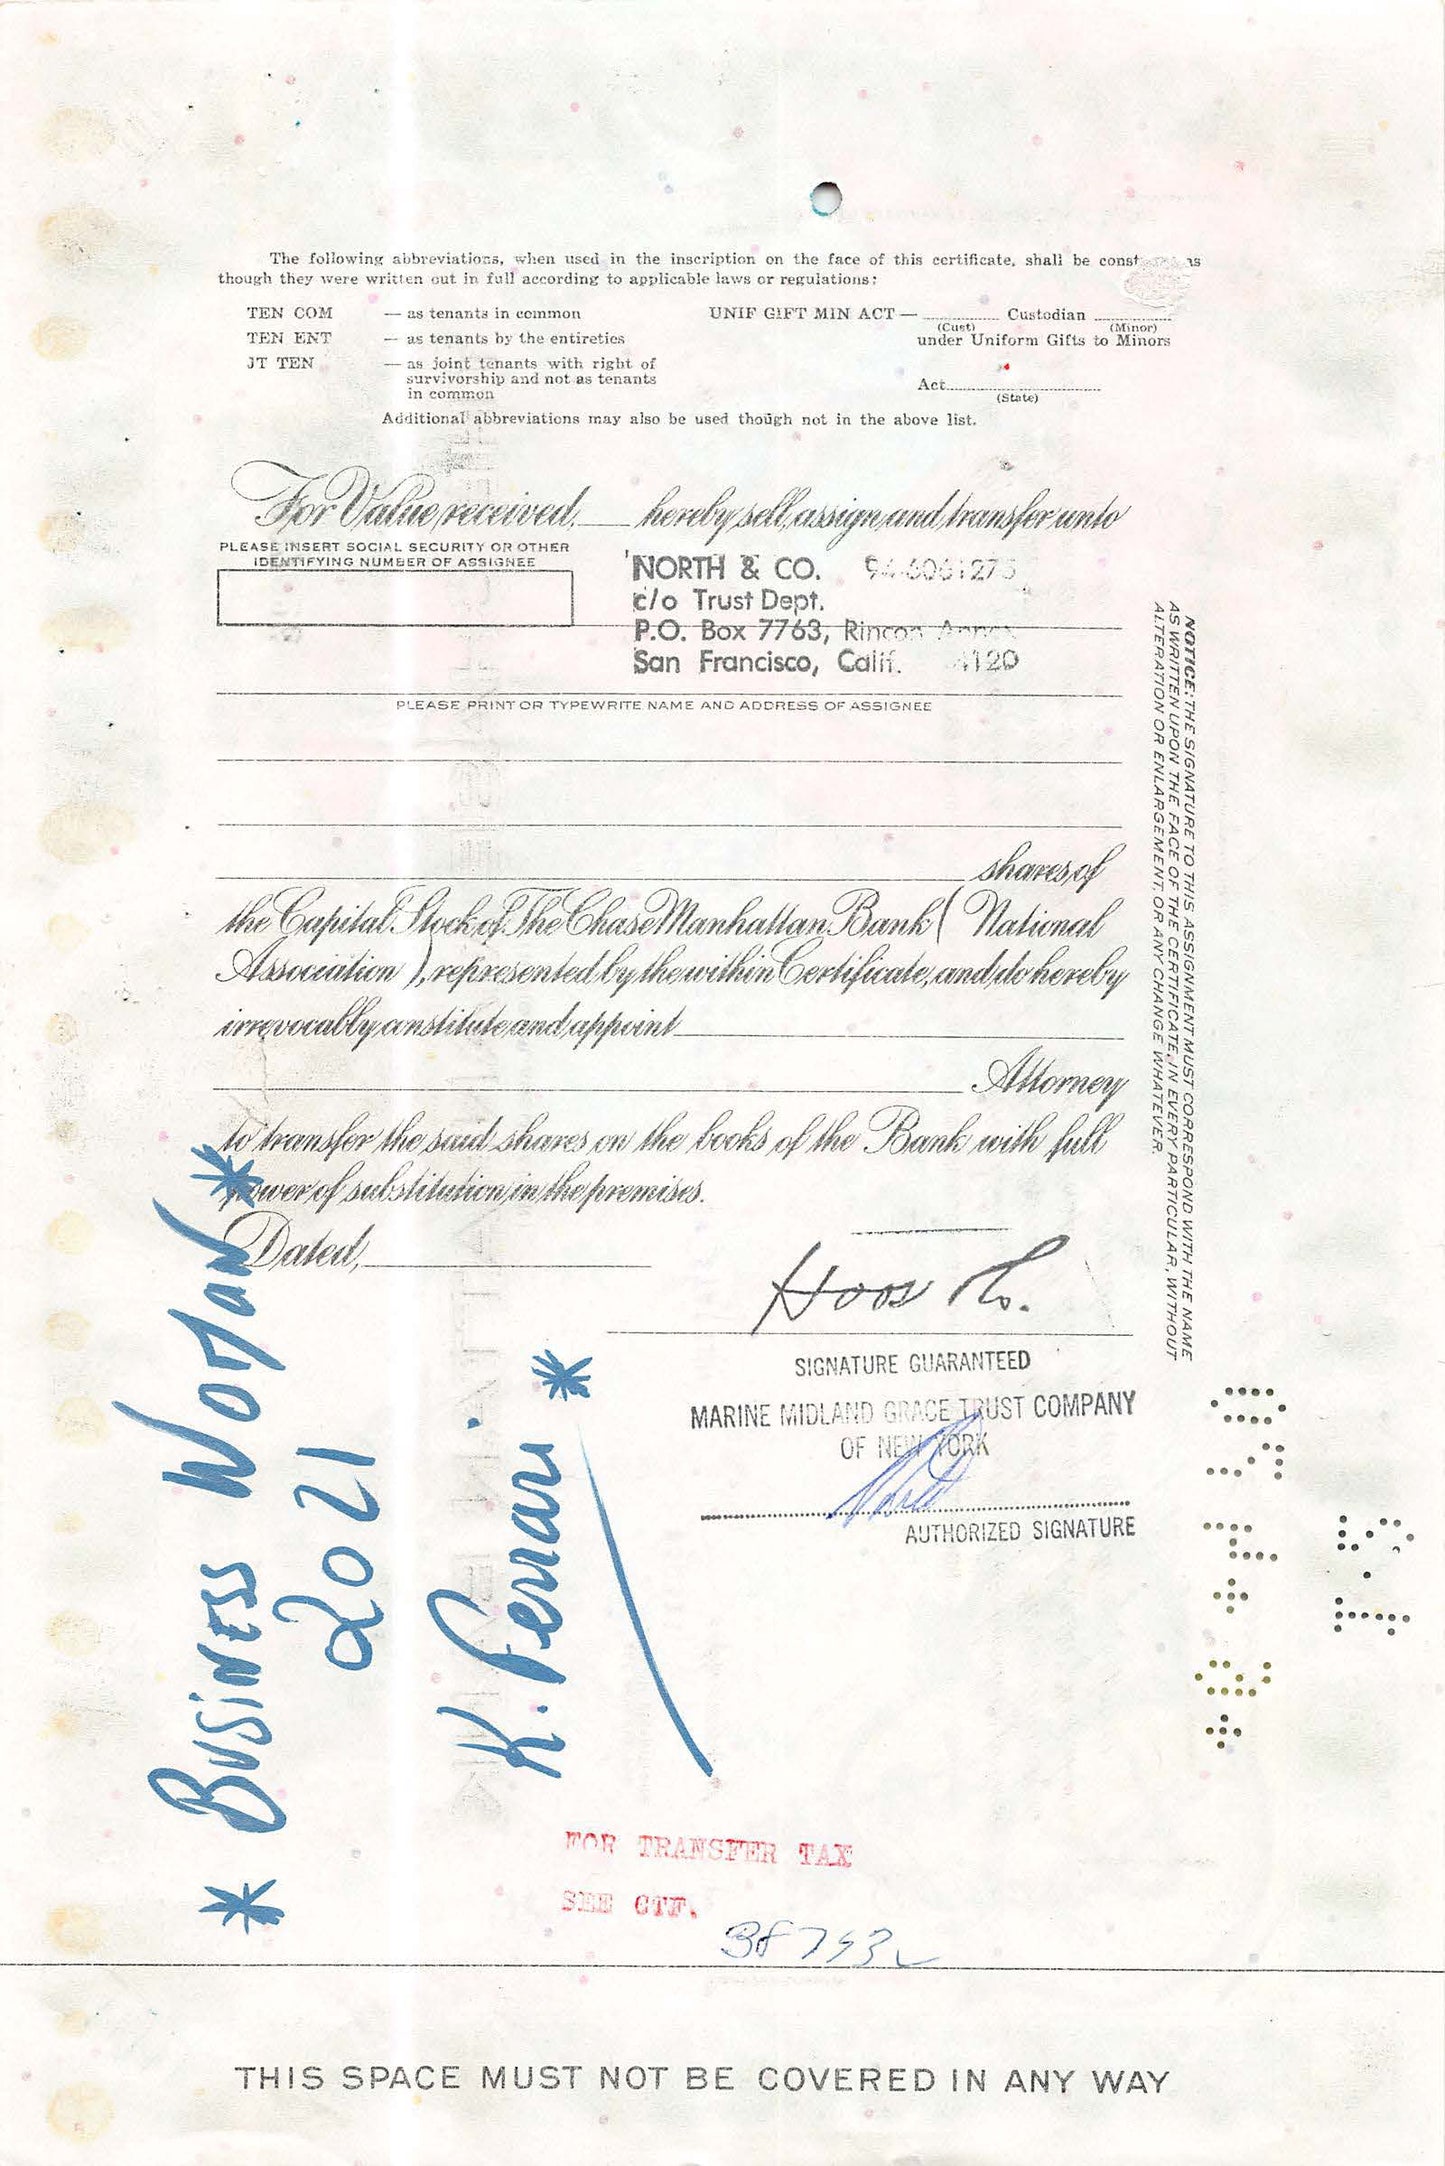 The following abbreviations, when used in the inscription on the face of this certificate, shall be
though they were written out in full according to applicable laws or regulations:
TEN COM — as tenants in common UNIF GIFT MIN ACT — Custodian
(Cust) (Minor)
TEN ENT — as tenants by the entireties under Uniform Gifts to Minors
JT TEN — as joint tenants with right of
survivorship and not as tenants
in common
Act
(State)
Additional abbreviations may also be used though not in the above list.
For Value received, hereby sell, assign and transfer unto
PLEASE INSERT SOCIAL SECURITY OR OTHER
IDENTIFYING NUMBER OF ASSIGNEE
NORTH & CO. 94-6061275
c/o Trust Dept.
P.O. Box 7763, Rincon Annex
San Francisco, Calif. 4120
PLEASE PRINT OR TYPEWRITE NAME AND ADDRESS OF ASSIGNEE
shares of
the Capital Stock of The Chase Manhattan Bank (National
Association), represented by the within Certificate, and do hereby
irrevocably constitute and appoint
Attorney
to transfer the said shares on the books of the Bank with full
power of substitution in the premises.
Dated,
NOTICE: THE SIGNATURE TO THIS ASSIGNMENT MUST CORRESPOND WITH THE NAME
AS WRITTEN UPON THE FACE OF THE CERTIFICATE, IN EVERY PARTICULAR, WITHOUT
ALTERATION OR ENLARGEMENT, OR ANY CHANGE WHATEVER.
SIGNATURE GUARANTEED
MARINE MIDLAND GRACE TRUST COMPANY
OF NEW YORK
AUTHORIZED SIGNATURE
* BUSINESS WOMAN *
2021
K. Ferrari *
FOR TRANSFER TAX
SEE CTF.
THIS SPACE MUST NOT BE COVERED IN ANY WAY